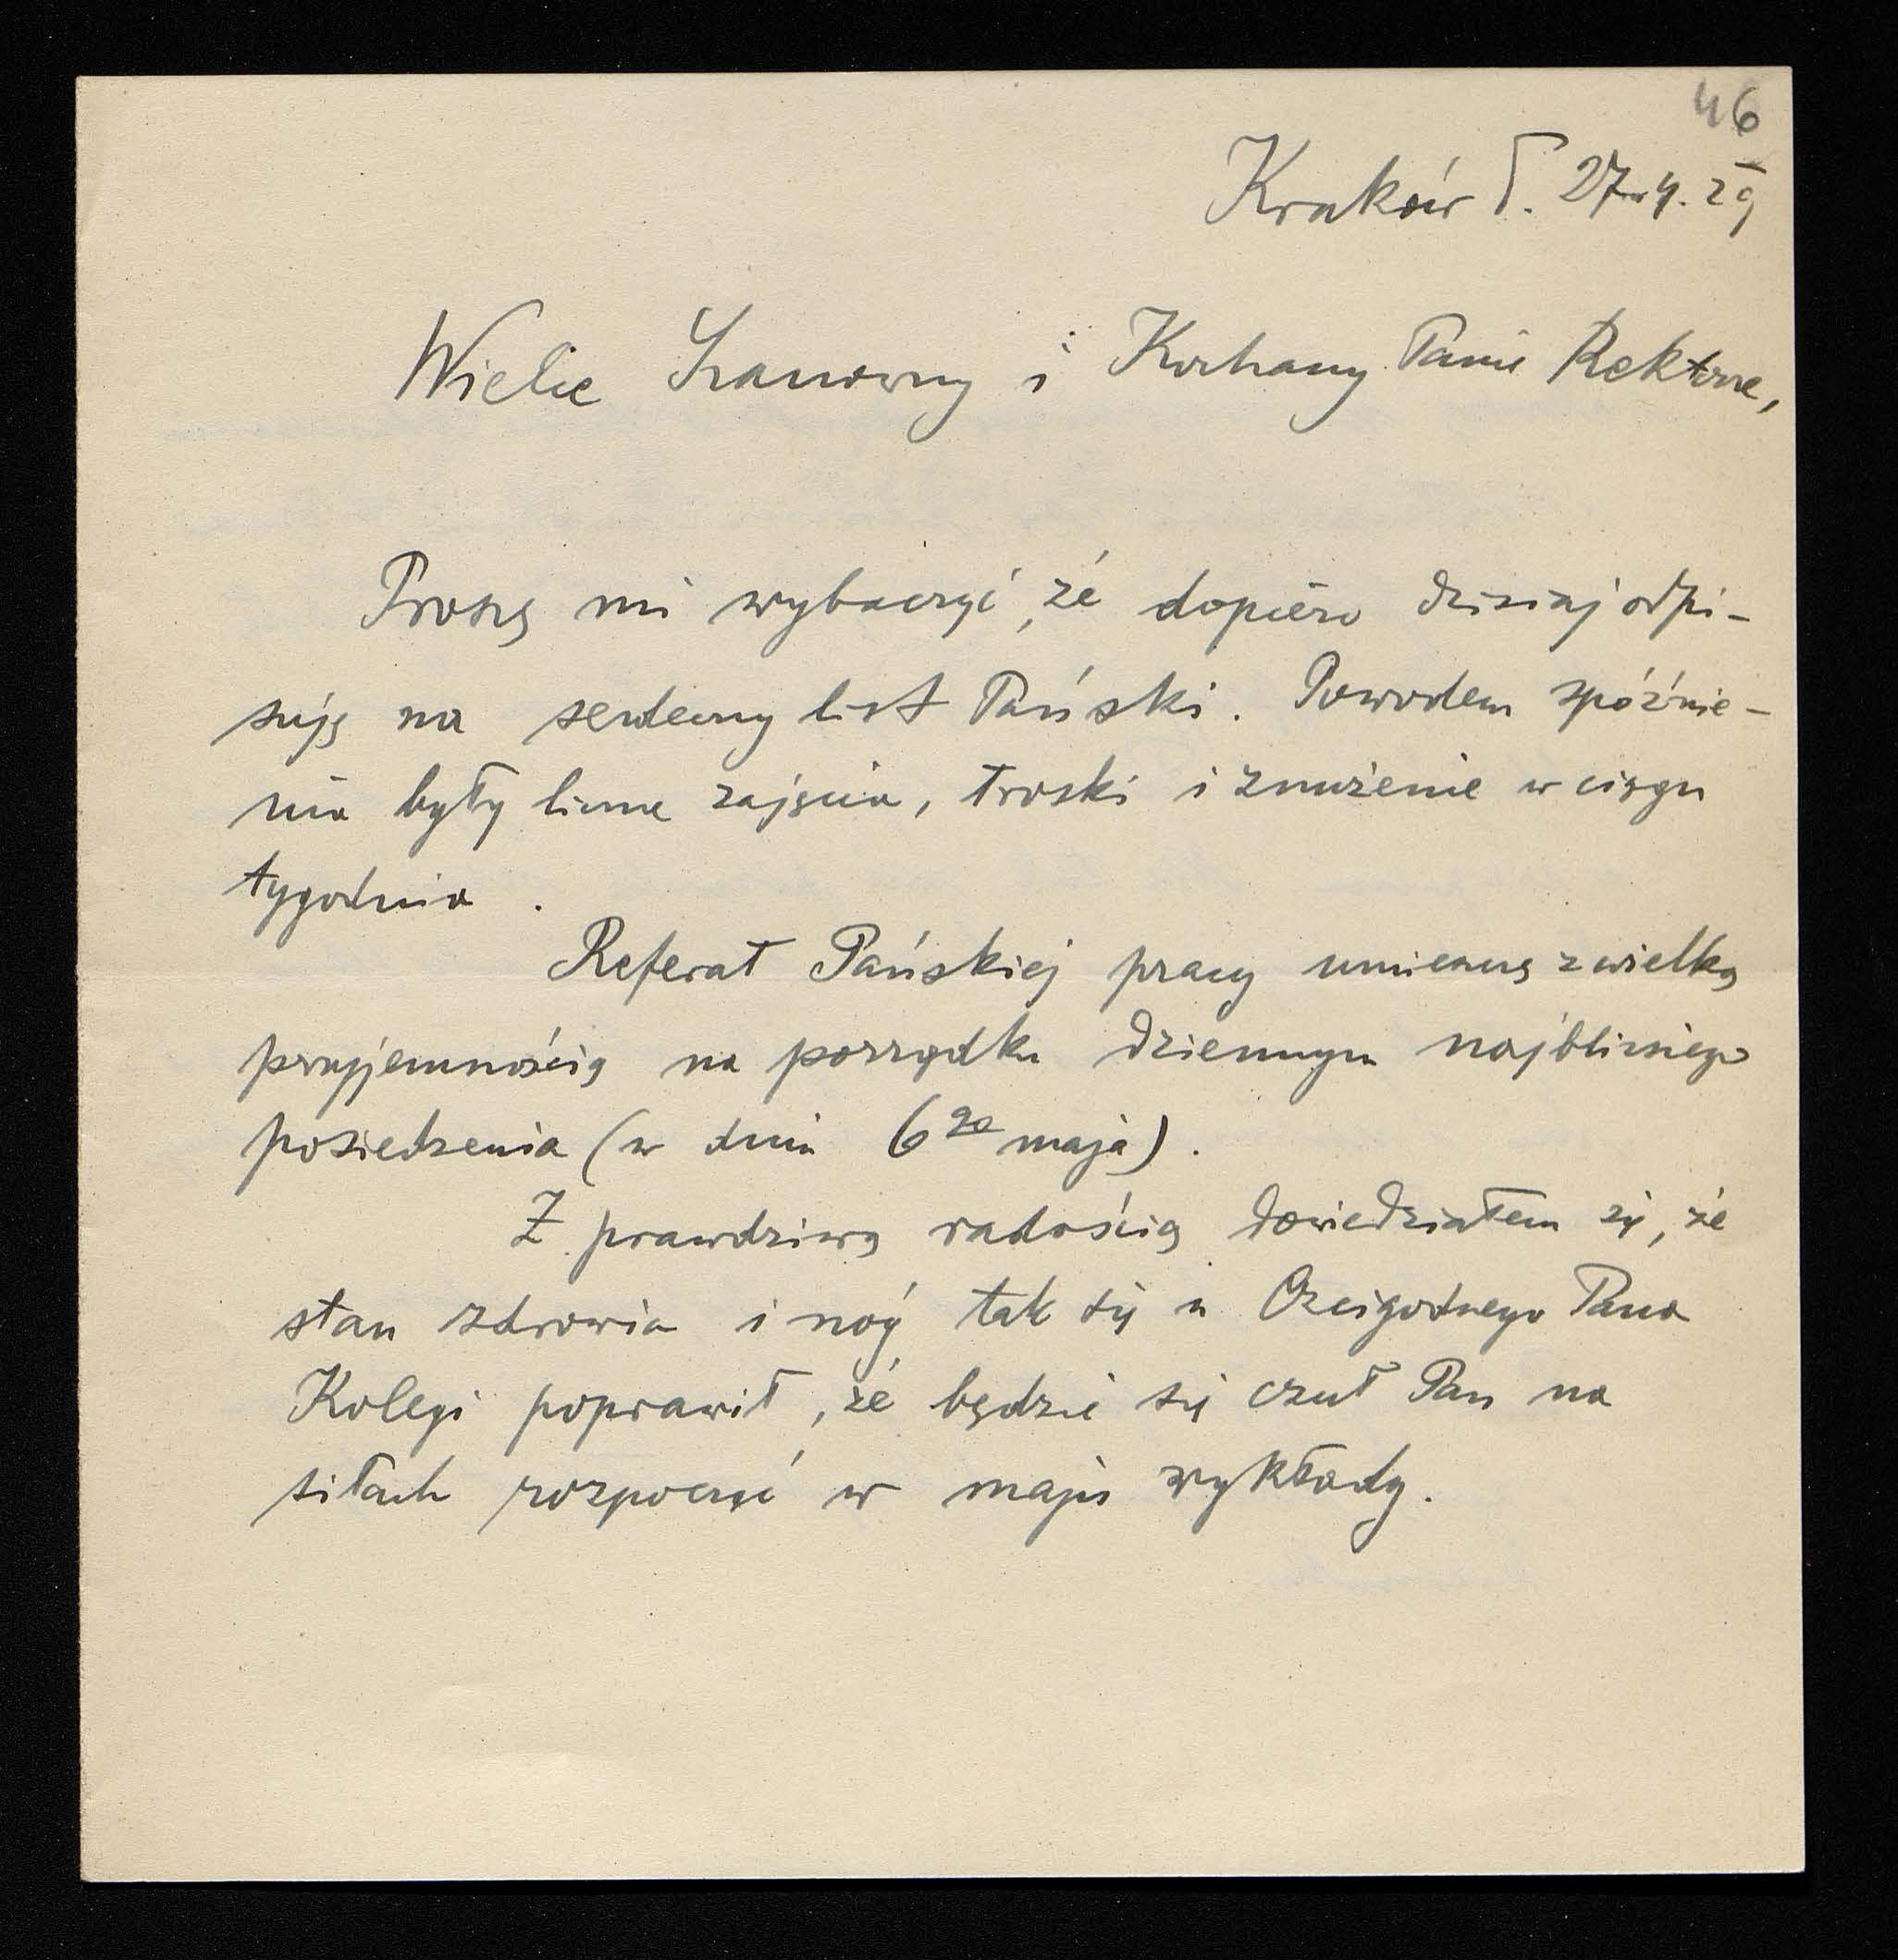 46
Kraków d. 27.4.29
Wielce Szanowny i Kochany Panie Rektorze,
Proszę mi wybaczyć, że dopiero dzisiaj odpi-
suję na serdeczny list Pański. Powodem spóźnie-
nia były liczne zajęcia, troski i znużenie w ciągu
tygodnia.
Referat Pańskiej pracy umieszczę z wielką
przyjemnością na porządku dziennym najbliższego
posiedzenia (w dniu 6go maja).
Z prawdziwą radością dowiedziałem się, że
stan zdrowia i nóg tak się u Czcigodnego Pana
Kolegi poprawił, że będzie się czuł Pan na
siłach rozpocząć w maju wykłady.